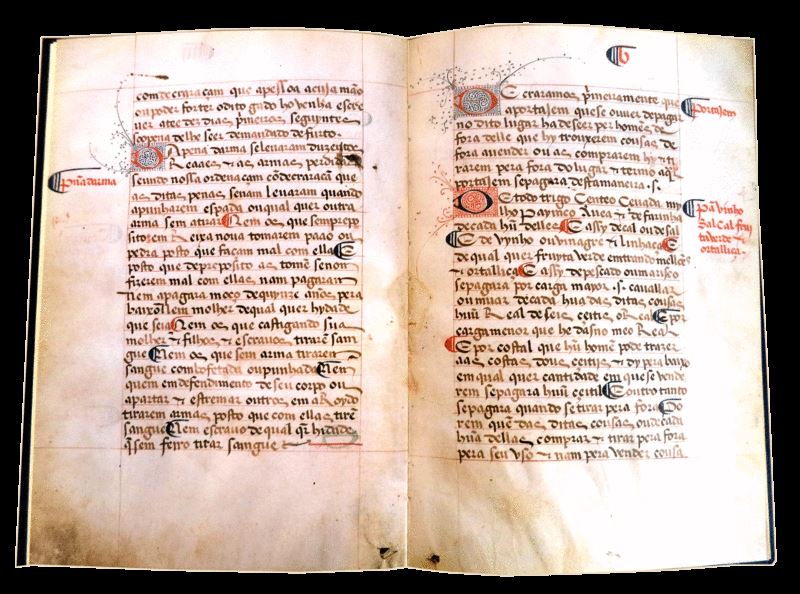 comdecraraçam que apessoa acuja mão
ou poder for ter o dito gado ho venha escre
uer atee dez dias primeiros seguintes
so pena de lhe ser demandado de furto.
Pena darma
A pena darma se leuaram duzentos
Reaaes & as armas perdidas
segundo nossa ordenaçam cõ decraraçã que
as ditas penas senam leuaram quando
apunharem espada ou qual quer outra
arma sem a tirar Nem os que sem prepo
sito em Reixa noua tomarem paao ou
pedra posto que façam mal com ella E
posto que de preposito as tomẽ se nom
fizerem mal com ellas nam pagaram
Nem a pagara moço de quinze anos pera
baixo Nem molher de qual quer hydade
que seia Nem os que castigando sua
molher & filhos & escrauos tirarẽ san
gue Nem os que sem arma tirarem
sangue com bofetada ou punhada Nem
quem em defendimento de seu corpo ou
apartar & estremar outros em aRoydo
tirarem armas posto que com ellas tirẽ
sangue Nem escrauo de qual qr hidade
q̃ sem ferro tirar sangue
Portajem
Decraramos primeiramente que
a portajem que se ouuer de pagar
no dito lugar ha de ser per homẽs de
fora delle que hy trouxerem cousas de
fora a vender ou as comprarem hy & ti
rarem pera fora do lugar & termo a qual
portajem se pagara desta maneira .s.
Pã vinho
Sal Cal fruy
ta verde &
ortalliça.
De todo trigo Centeo Ceuada mi
lho Painço Auea & de farinha
de cada hũ delles E assy de cal ou de sal
E de vynho ou vinagre & linhaça E
de qual quer fruyta verde emtrando mellões
& ortalliça E assy de pescado ou marisco
se pagara por carga mayor .s. cauallar
ou muar de cada hũa das ditas cousas
huũ Real de seis ceitis o Real E por
carga menor que he dasno meo Real
E por costal que hũ homẽ pode trazer
das cousas dous ceitis & dy pera baixo
em qual quer cantidade em que se vende
rem se pagara huũ ceitil E outro tanto
se pagara quando se tirar pera fora Po
rem quẽ das ditas cousas ou de cada
hũa dellas comprar & tirar pera fora
pera seu vso & nam pera vender cousa